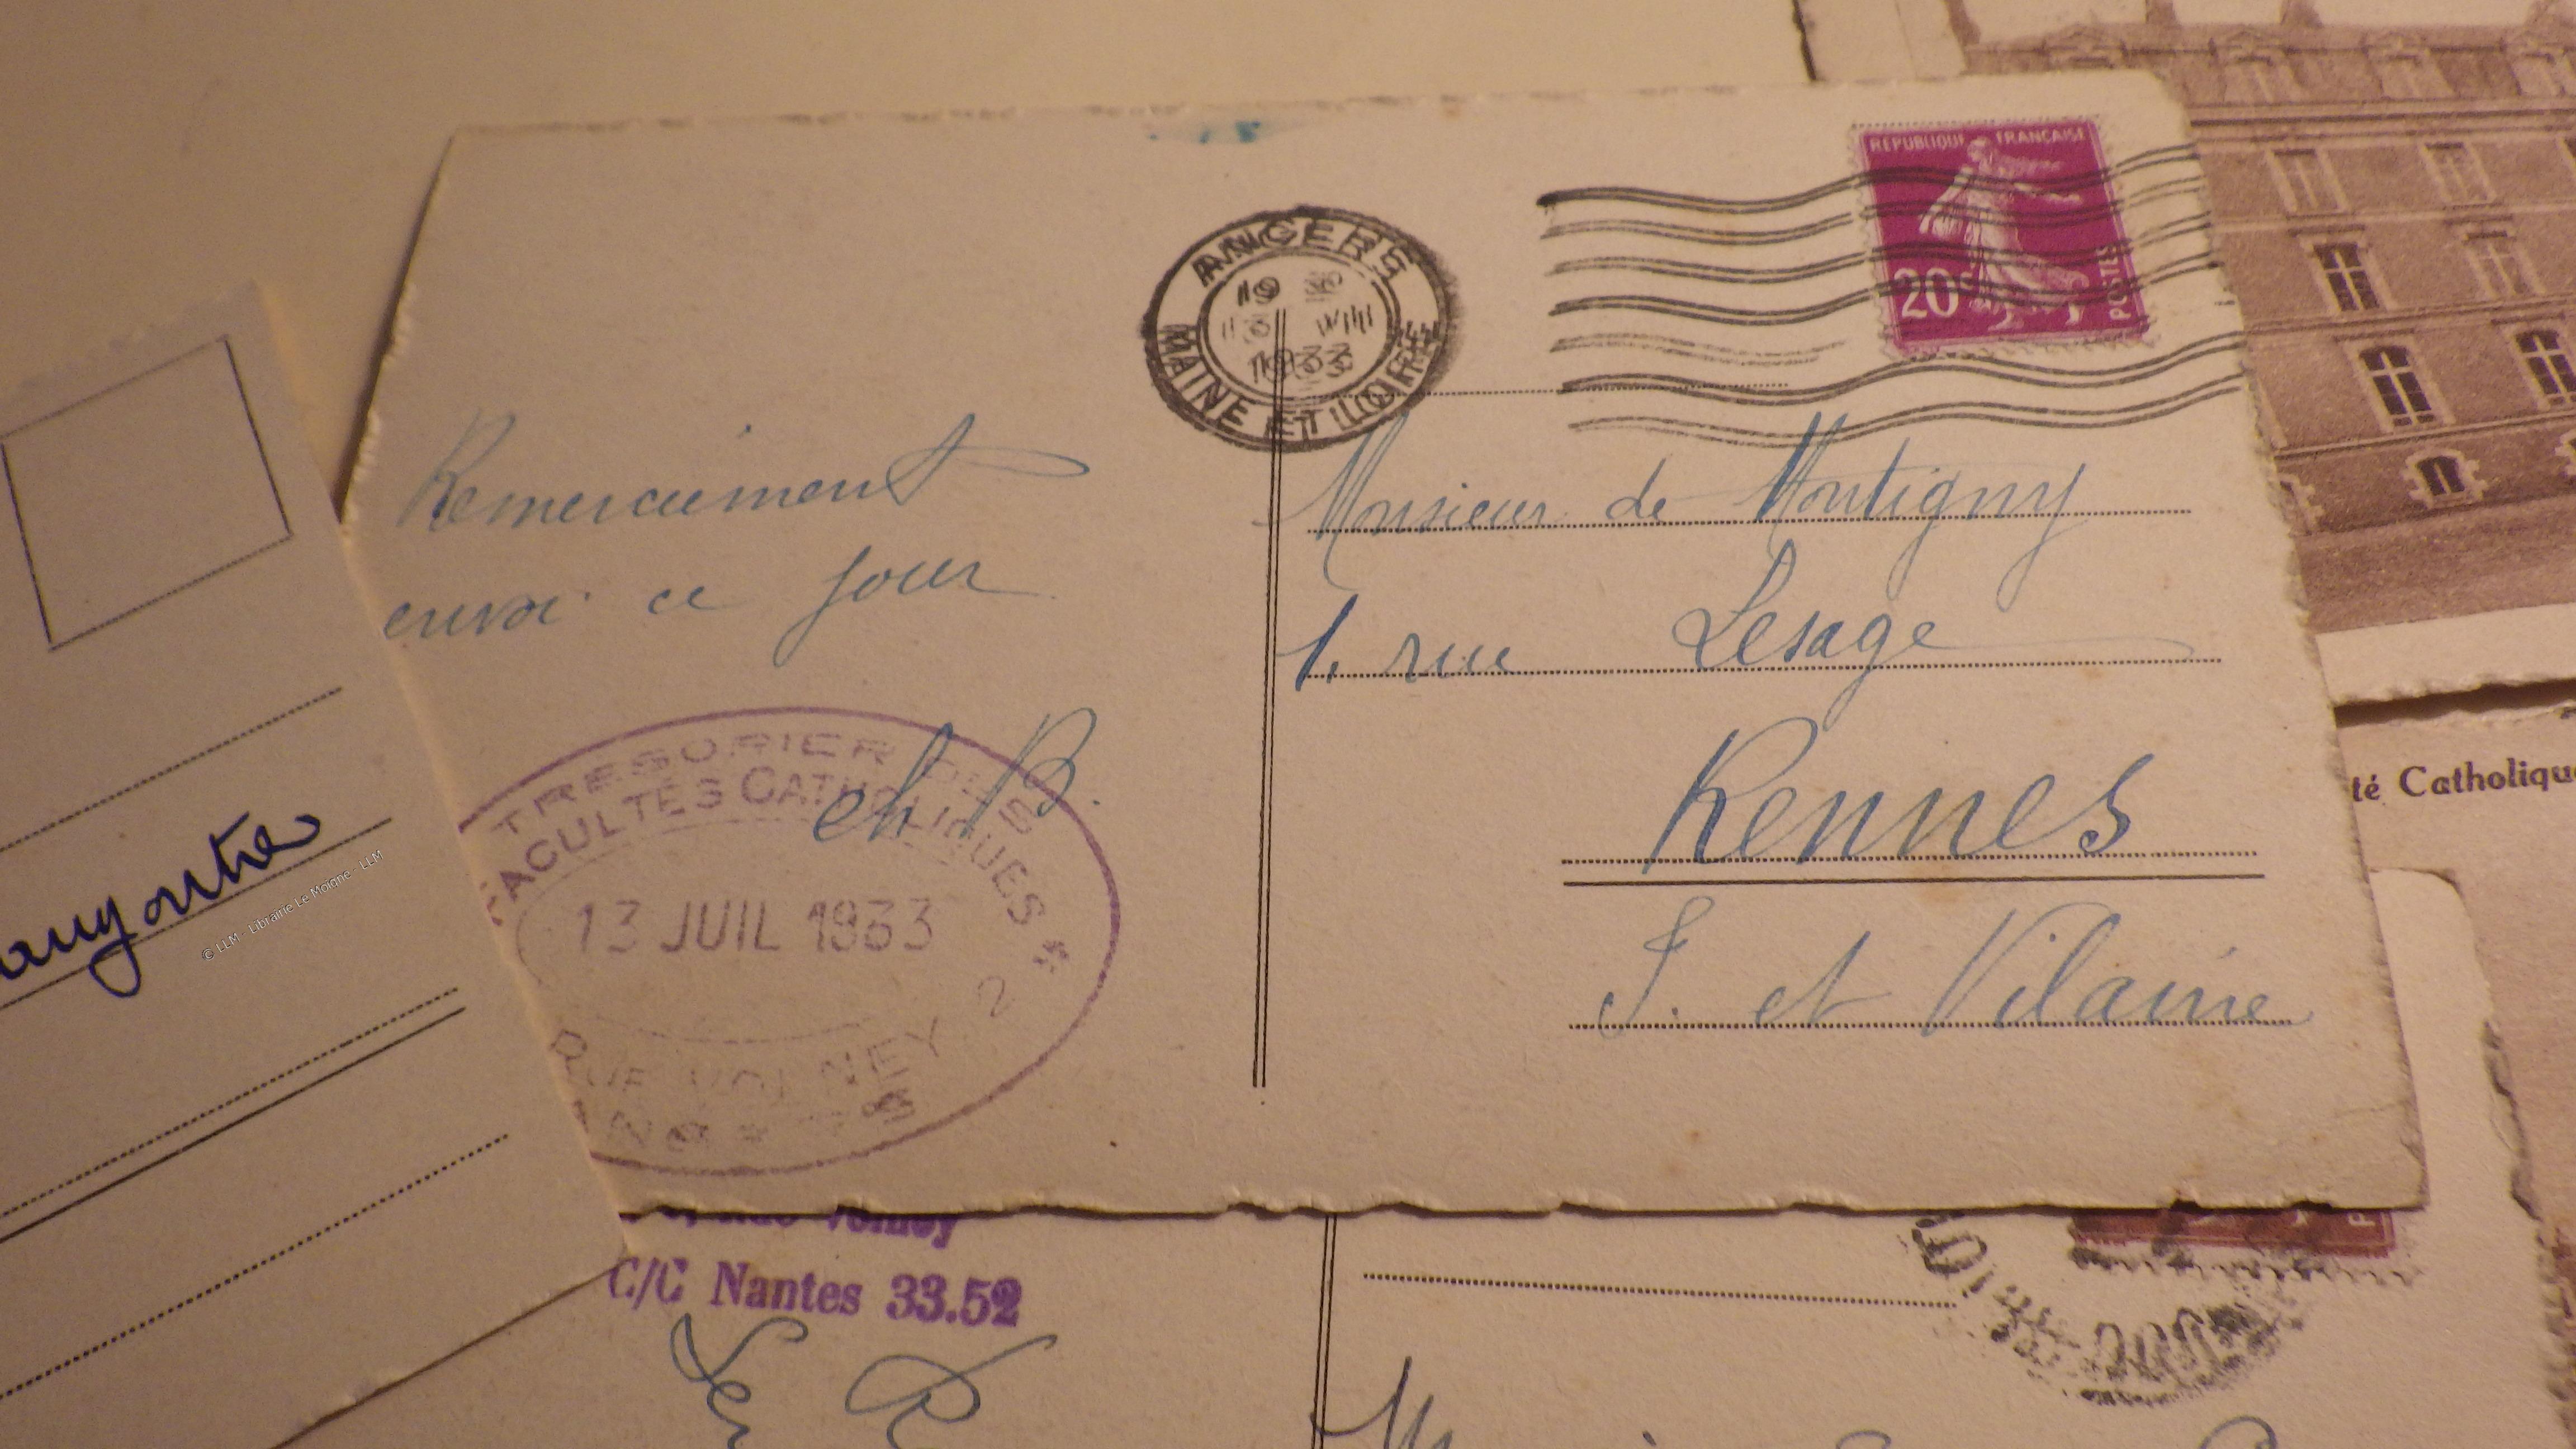 REPUBLIQUE FRANÇAISE
20c
POSTES
ANGERS
1933
MAINE ET LOIRE
Remerciement
envoi ce jour
ch B.
TRESORIER DES
FACULTES CATHOLIQUES *
13 JUIL 1933
2
RUE VOLNEY
Monsieur de Montigny
1, rue Lesage
Rennes
I. et Vilaine
té Catholique
© LLM - Librairie Le Moigne - LLM
Rue Volney
C/C Nantes 33.52